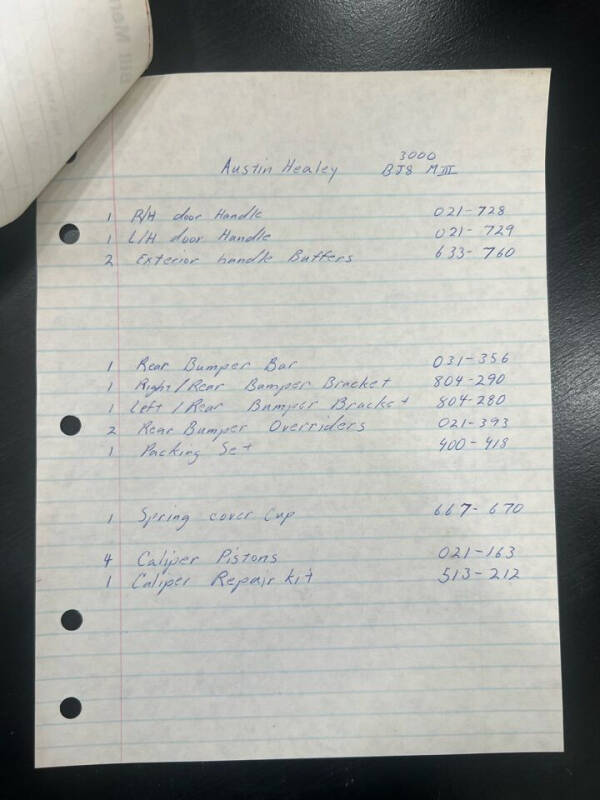 3000
Austin Healey BJ8 MIII
1 R/H door Handle 021-728
1 L/H door Handle 021-729
2 Exterior handle Buffers 633-760
1 Rear Bumper Bar 031-356
1 Right/Rear Bumper Bracket 804-290
1 Left/Rear Bumper Bracket 804-280
2 Rear Bumper Overriders 021-393
1 Packing Set 400-418
1 Spring cover Cup 667-670
4 Caliper Pistons 021-163
1 Caliper Repair kit 513-212